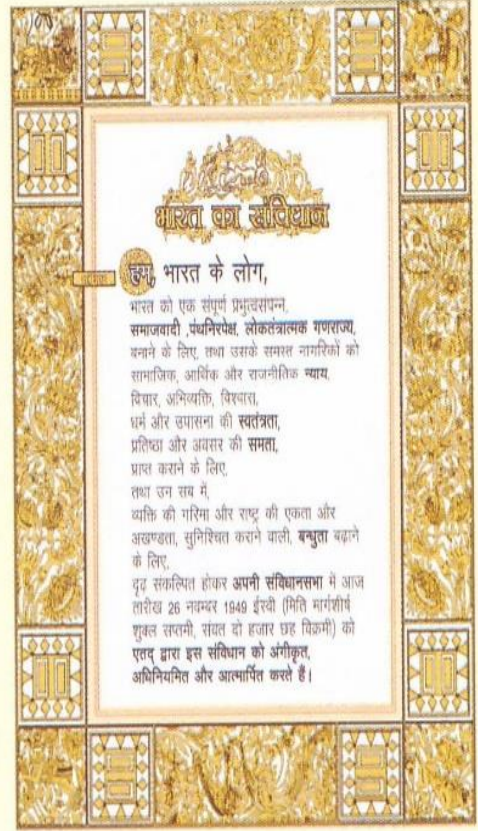 भारत का संविधान
हम, भारत के लोग,
भारत को एक संपूर्ण प्रभुत्वसंपन्न,
समाजवादी ,पंथनिरपेक्ष, लोकतंत्रात्मक गणराज्य,
बनाने के लिए, तथा उसके समस्त नागरिकों को
सामाजिक, आर्थिक और राजनीतिक न्याय,
विचार, अभिव्यक्ति, विश्वास,
धर्म और उपासना की स्वतंत्रता,
प्रतिष्ठा और अवसर की समता,
प्राप्त कराने के लिए,
तथा उन सब में,
व्यक्ति की गरिमा और राष्ट्र की एकता और
अखण्डता, सुनिश्चित कराने वाली, बन्धुता बढ़ाने
के लिए,
दृढ़ संकल्पित होकर अपनी संविधानसभा में आज
तारीख 26 नवम्बर 1949 ईस्वी (मिति मार्गशीर्ष
शुक्ल सप्तमी, संवत दो हजार छह विक्रमी) को
एतद् द्वारा इस संविधान को अंगीकृत,
अधिनियमित और आत्मार्पित करते हैं।